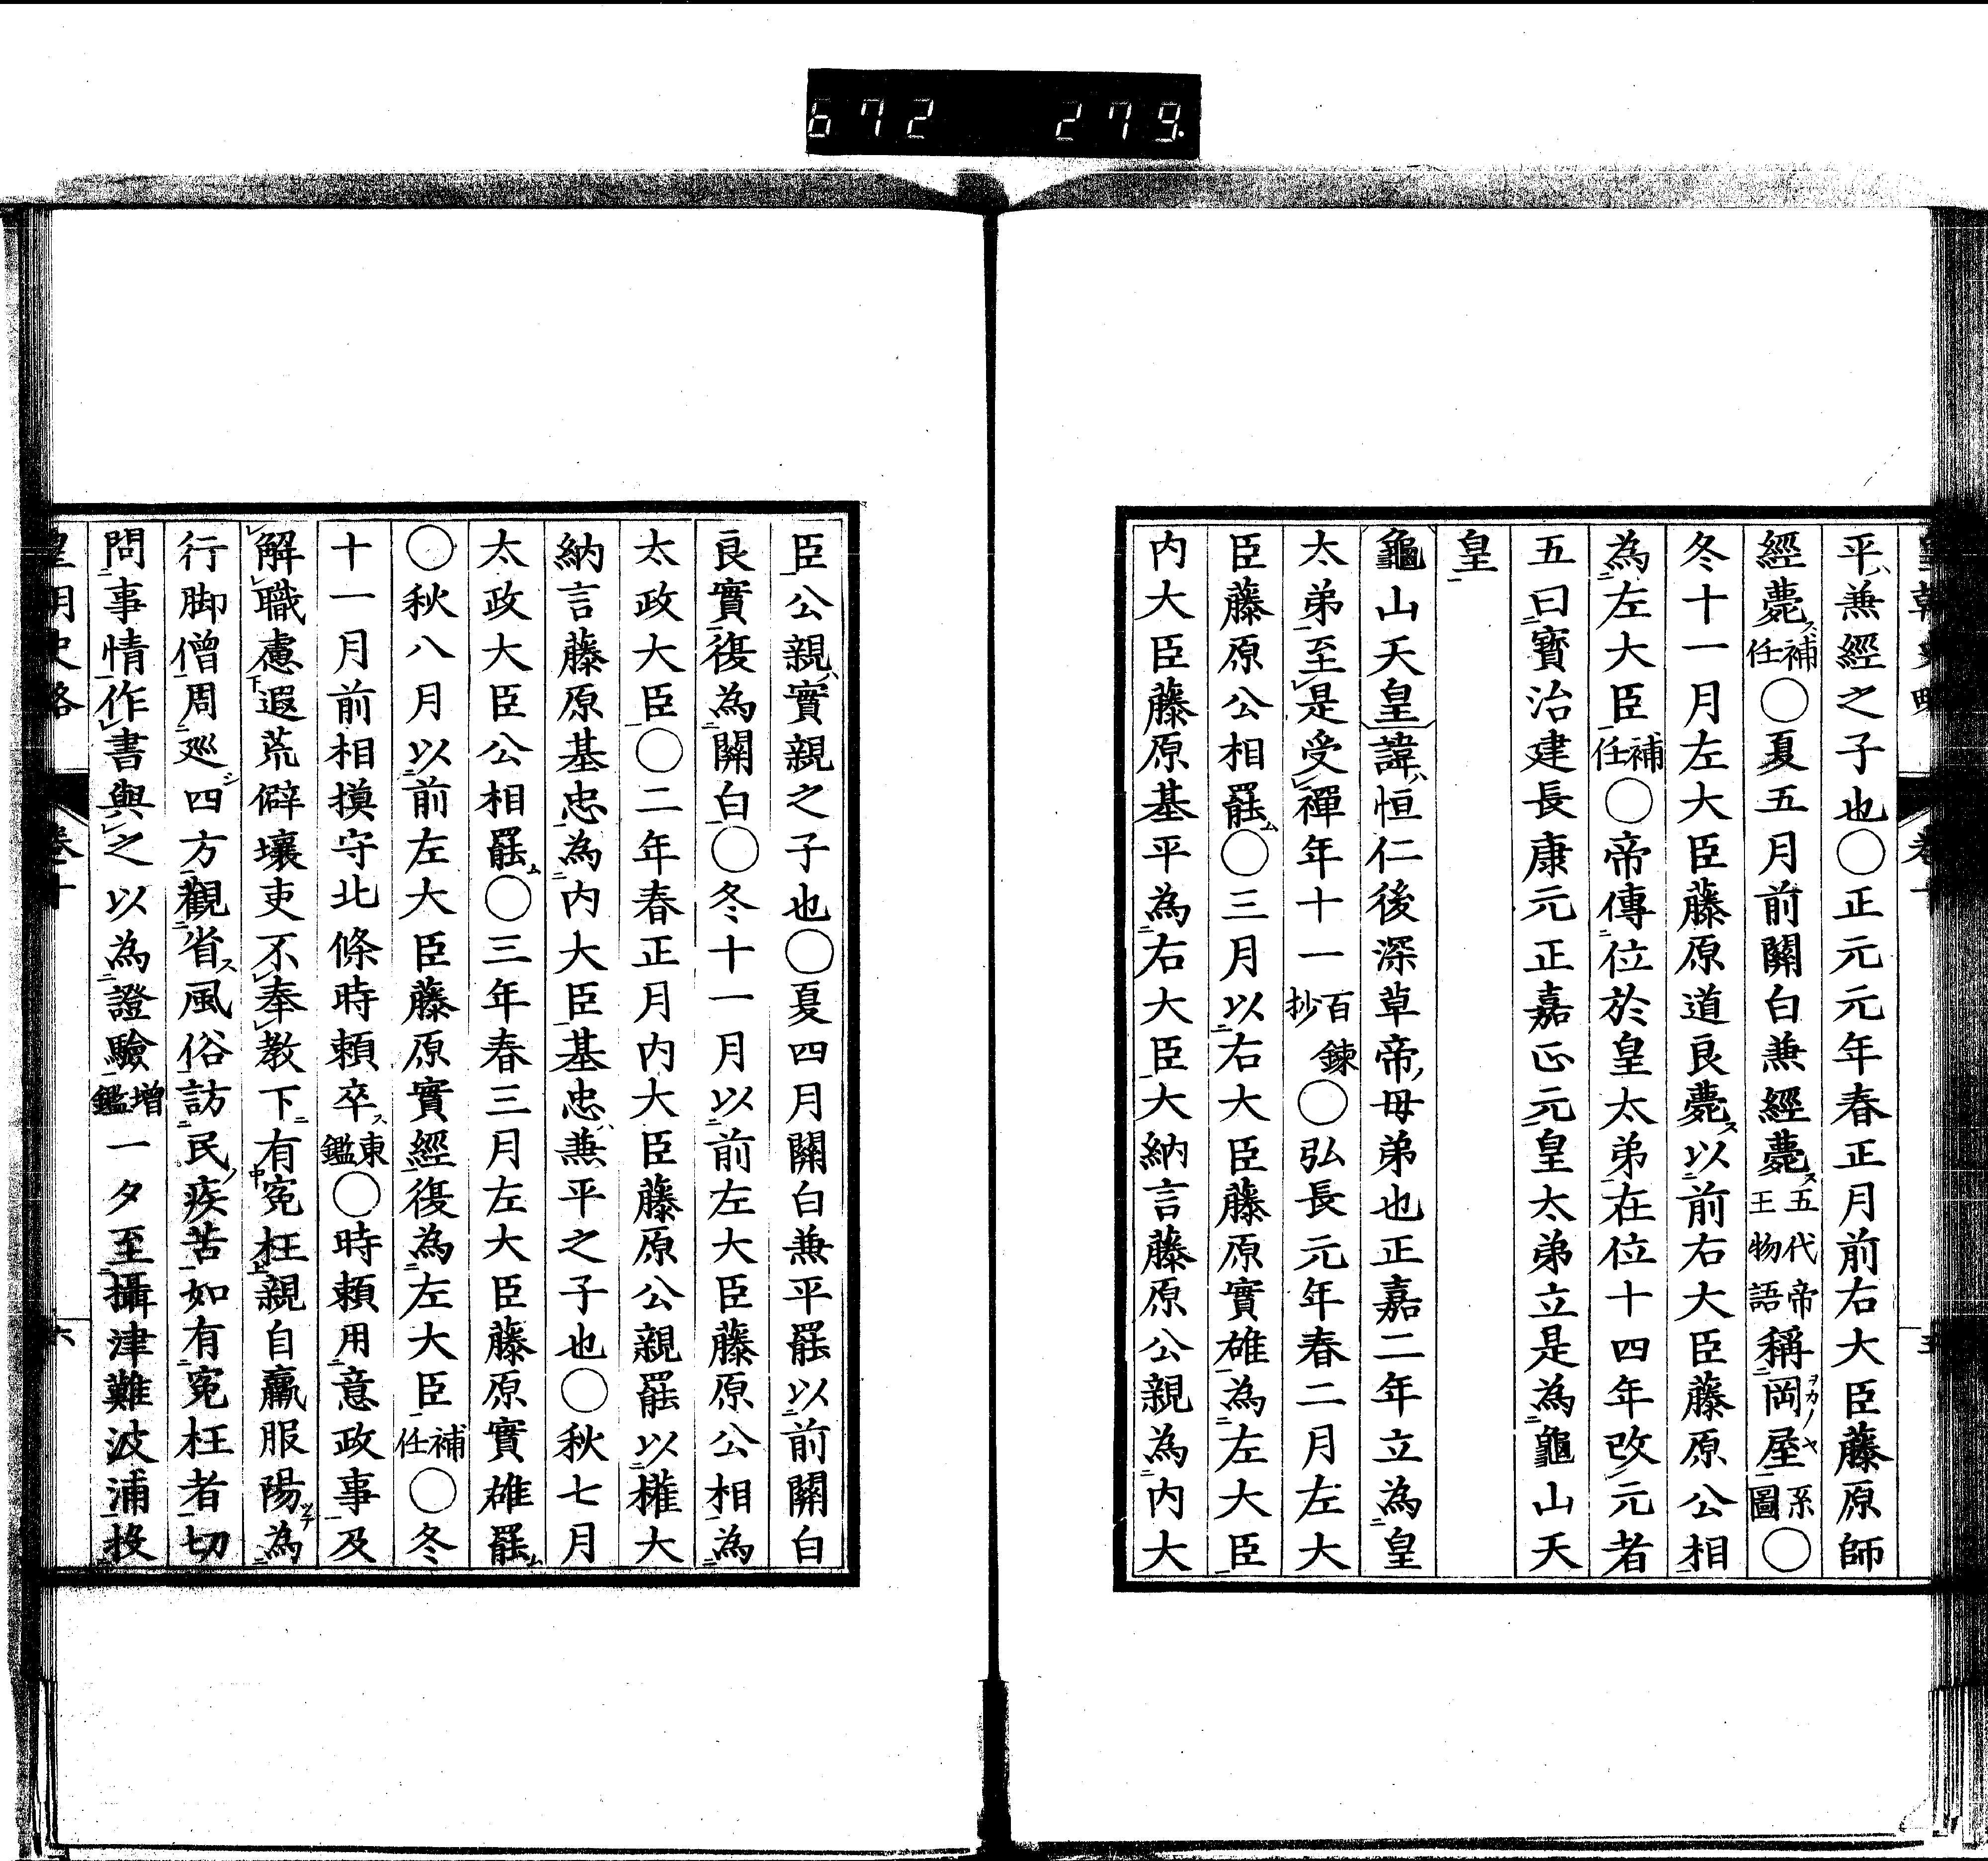 672 279.
平兼經之子也〇正元元年春正月前右大臣藤原師
經薨補任〇夏五月前關白兼經薨五代帝王物語稱岡屋系圖〇
冬十一月左大臣藤原道良薨以前右大臣藤原公相
為左大臣補任〇帝傳位於皇太弟在位十四年改元者
五曰寳治建長康元正嘉正元皇太弟立是為龜山天
皇
龜山天皇諱恒仁後深草帝母弟也正嘉二年立為皇
太弟至是受禪年十一百鍊抄〇弘長元年春二月左大
臣藤原公相罷〇三月以右大臣藤原實雄為左大臣
内大臣藤原基平為右大臣大納言藤原公親為内大
臣公親實親之子也〇夏四月關白兼平罷以前關白
良實復為關白〇冬十一月以前左大臣藤原公相為
太政大臣〇二年春正月内大臣藤原公親罷以權大
納言藤原基忠為内大臣基忠兼平之子也〇秋七月
太政大臣公相罷〇三年春三月左大臣藤原實雄罷
〇秋八月以前左大臣藤原實經復為左大臣補任〇冬
十一月前相摸守北條時頼卒東鑑〇時頼用意政事及
解職慮遐荒僻壤吏不奉教下有寃枉親自羸服陽為
行脚僧周巡四方觀省風俗訪民疾苦如有寃枉者切
問事情作書與之以為證驗增鑑一夕至攝津難波浦投